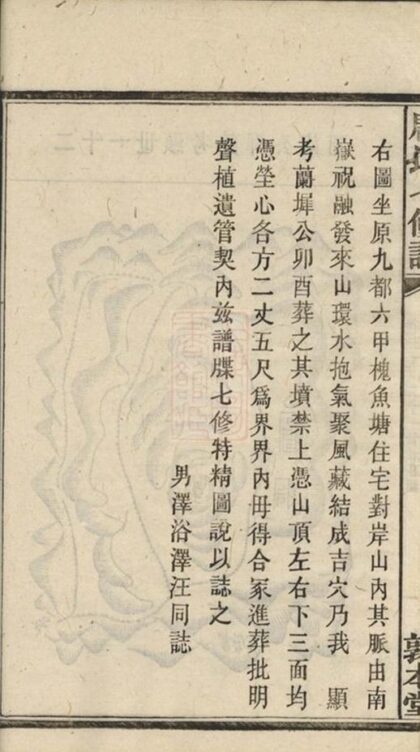 右圖坐原九都六甲槐魚塘住宅對岸山內其脈由南
嶽祝融發來山環水抱氣聚風藏結成吉穴乃我　顯
考蘭墀公卯酉葬之其墳禁上憑山頂左右下三面均
憑塋心各方二丈五尺爲界界內毋得合冢進葬批明
聲植遺管契內兹譜牒七修特精圖說以誌之
男澤浴澤汪同誌
敦本堂